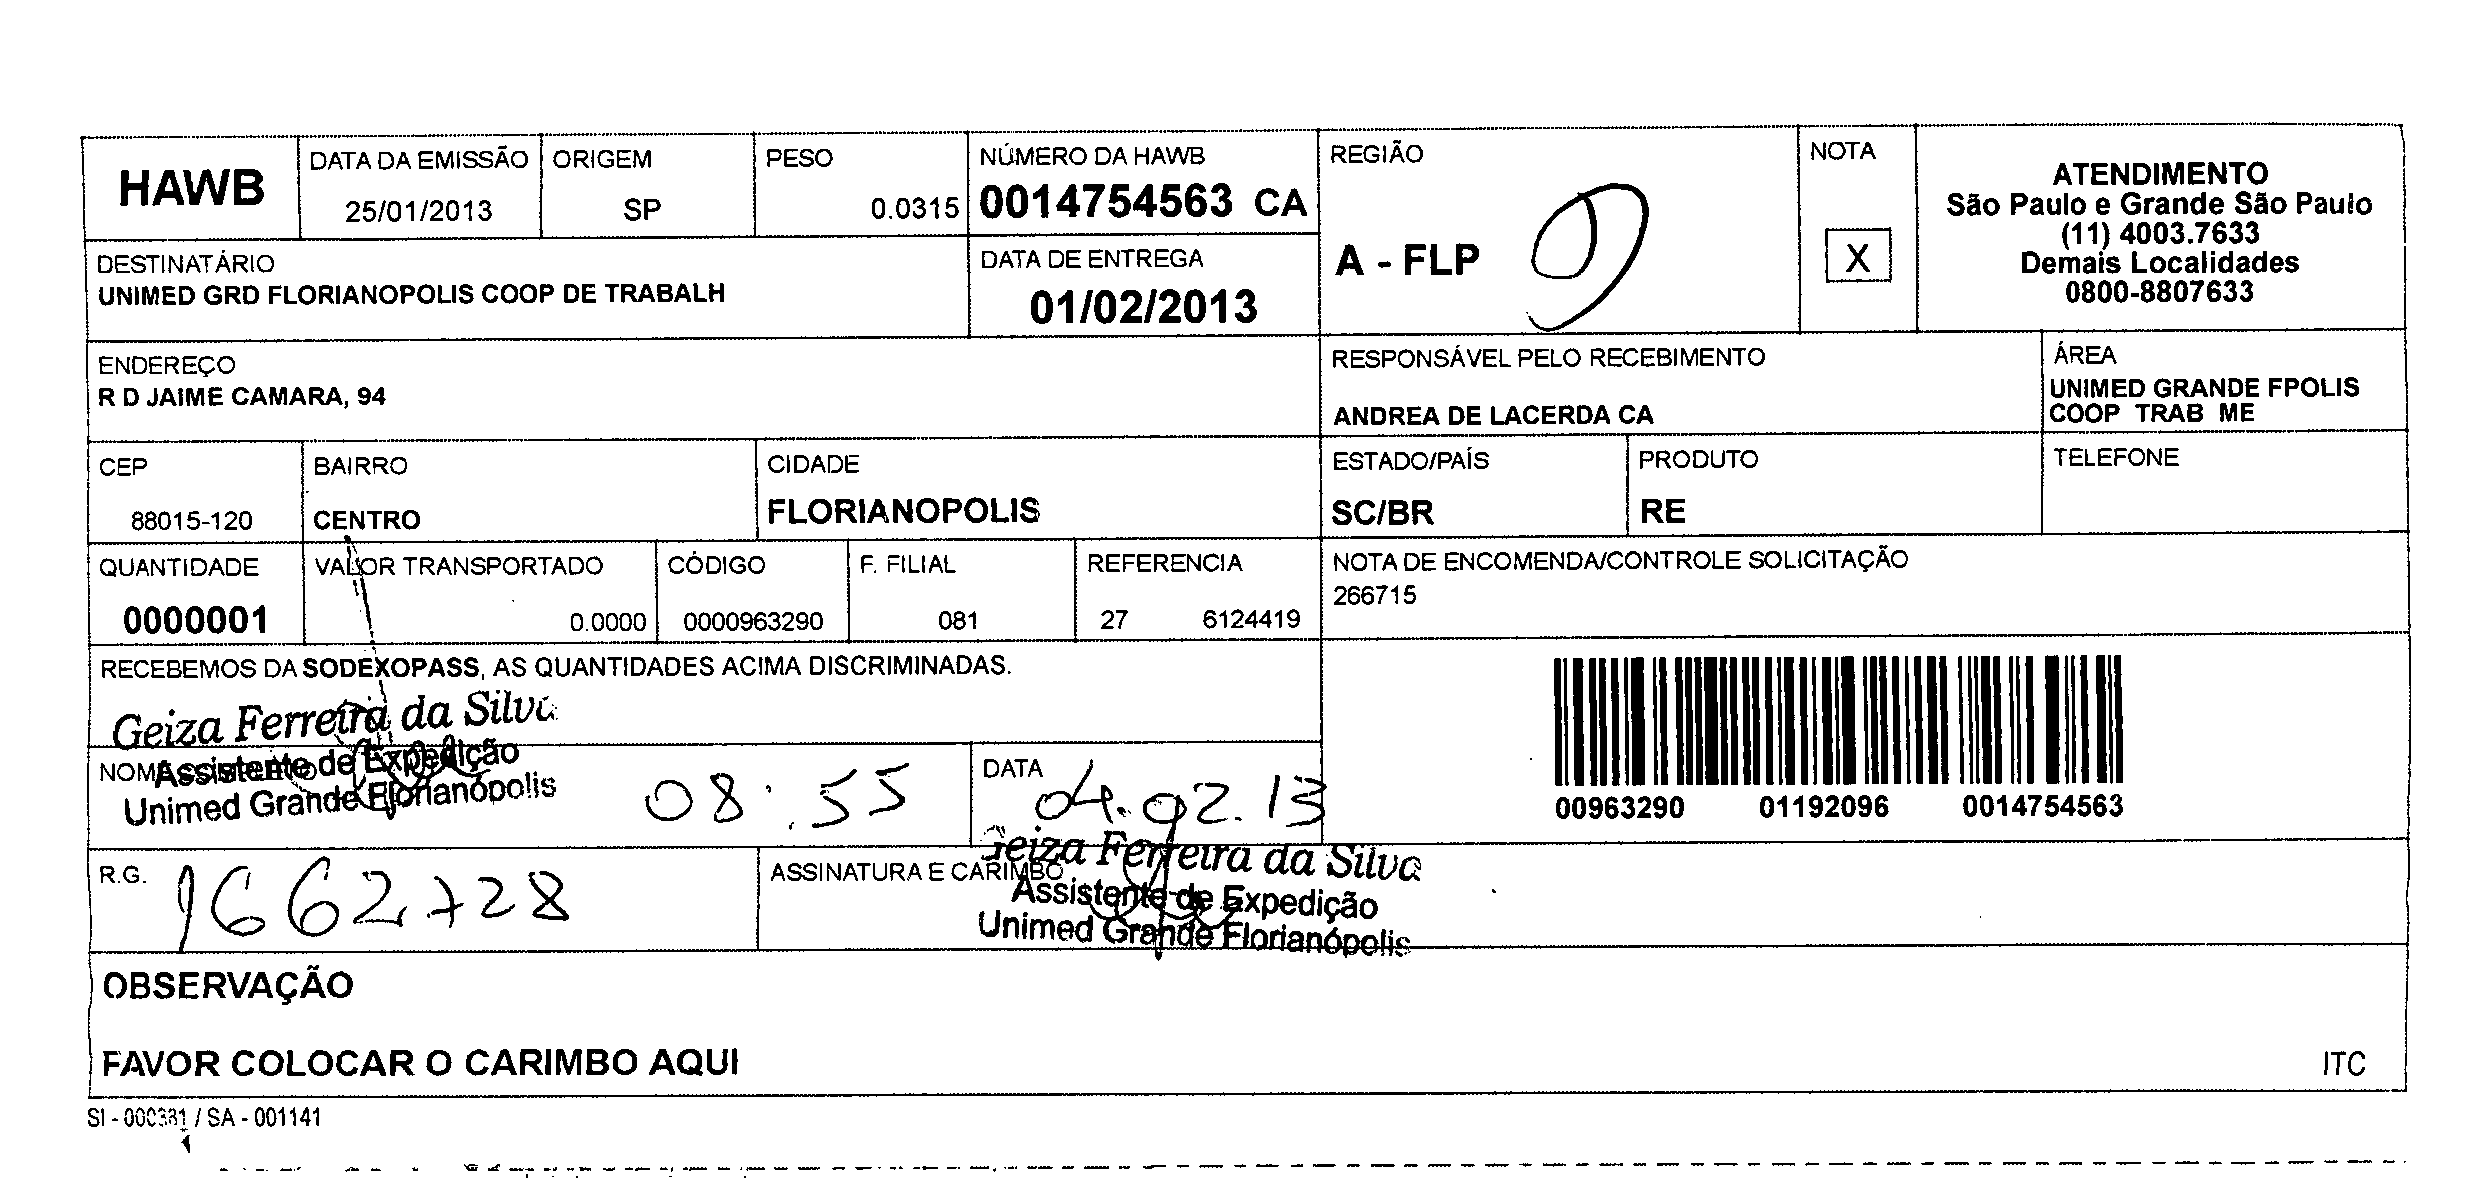 HAWB
DATA DA EMISSÃO
25/01/2013
ORIGEM
SP
PESO
0.0315
NÚMERO DA HAWB
0014754563 CA
REGIÃO
A - FLP
NOTA
X
ATENDIMENTO
São Paulo e Grande São Paulo
(11) 4003.7633
Demais Localidades
0800-8807633
DESTINATÁRIO
UNIMED GRD FLORIANOPOLIS COOP DE TRABALH
DATA DE ENTREGA
01/02/2013
ENDEREÇO
R D JAIME CAMARA, 94
RESPONSÁVEL PELO RECEBIMENTO
ANDREA DE LACERDA CA
ÁREA
UNIMED GRANDE FPOLIS
COOP TRAB ME
CEP
88015-120
BAIRRO
CENTRO
CIDADE
FLORIANOPOLIS
ESTADO/PAÍS
SC/BR
PRODUTO
RE
TELEFONE
QUANTIDADE
0000001
VALOR TRANSPORTADO
0.0000
CÓDIGO
0000963290
F. FILIAL
081
REFERENCIA
27 6124419
NOTA DE ENCOMENDA/CONTROLE SOLICITAÇÃO
266715
RECEBEMOS DA SODEXOPASS, AS QUANTIDADES ACIMA DISCRIMINADAS.
Geiza Ferreira da Silva
Assistente de Expedição
Unimed Grande Florianópolis
08:55
DATA
04.02.13
00963290 01192096 0014754563
R.G.
1662728
ASSINATURA E CARIMBO
Geiza Ferreira da Silva
Assistente de Expedição
Unimed Grande Florianópolis
OBSERVAÇÃO
FAVOR COLOCAR O CARIMBO AQUI
ITC
SI - 000381 / SA - 001141